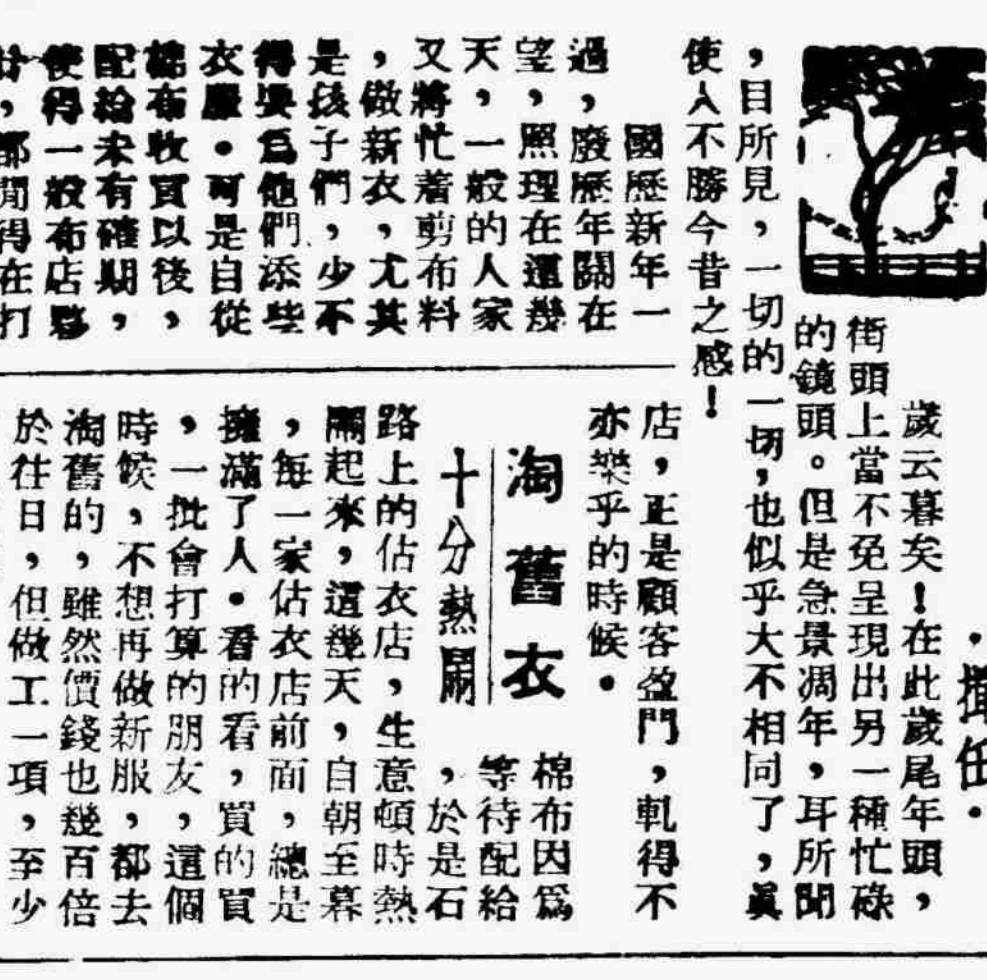 歲云暮矣！在此歲尾年頭，
街頭上當不免呈現出另一種忙碌
的鏡頭。但是急景凋年，耳所聞
，目所見，一切的一切，也似乎大不相同了，眞
使人不勝今昔之感！
國歷新年一
過，廢歷年關在
望，照理在這幾
天，一般的人家
又將忙着剪布料
，做新衣，尤其
是孩子們，少不
得要爲他們添些
衣服・可是自從
棉布收買以後，
配給未有確期，
使得一般布店夥
計，都閒得在打
店，正是顧客盈門，軋得不
亦樂乎的時候・
淘舊衣
十分熱鬧
棉布因爲
等待配給
，於是石
路上的估衣店，生意頓時熱
鬧起來，這幾天，自朝至暮
，每一家估衣店前面，總是
擁滿了人・看的看，買的買
，一批會打算的朋友，這個
時候，不想再做新服，都去
淘舊的，雖然價錢也幾百倍
於往日，但做工一項，至少